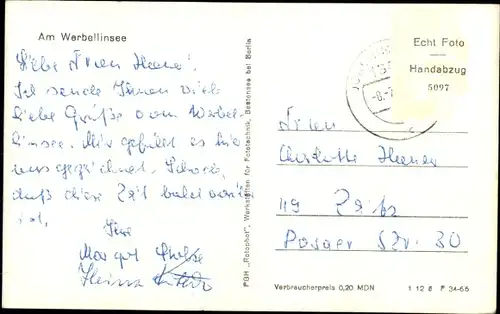 Am Werbellinsee
Liebe Frau
Ich sende Ihnen viele
liebe Grüße vom Werbel-
linsee. Mir gefällt es hier
ausgezeichnet. Schade,
daß diese Zeit bald vorüber
ist.
Ihre
Margot
Heinz
PGH „Rotophot“, Werkstätten für Fototechnik, Bestensee bei Berlin
Echt Foto
Handabzug
5097
-8.-7
c
Frau
Charlotte
49 Zeitz
Posaer Str. 30
Verbraucherpreis 0,20 MDN
1 12 6 F 34-66